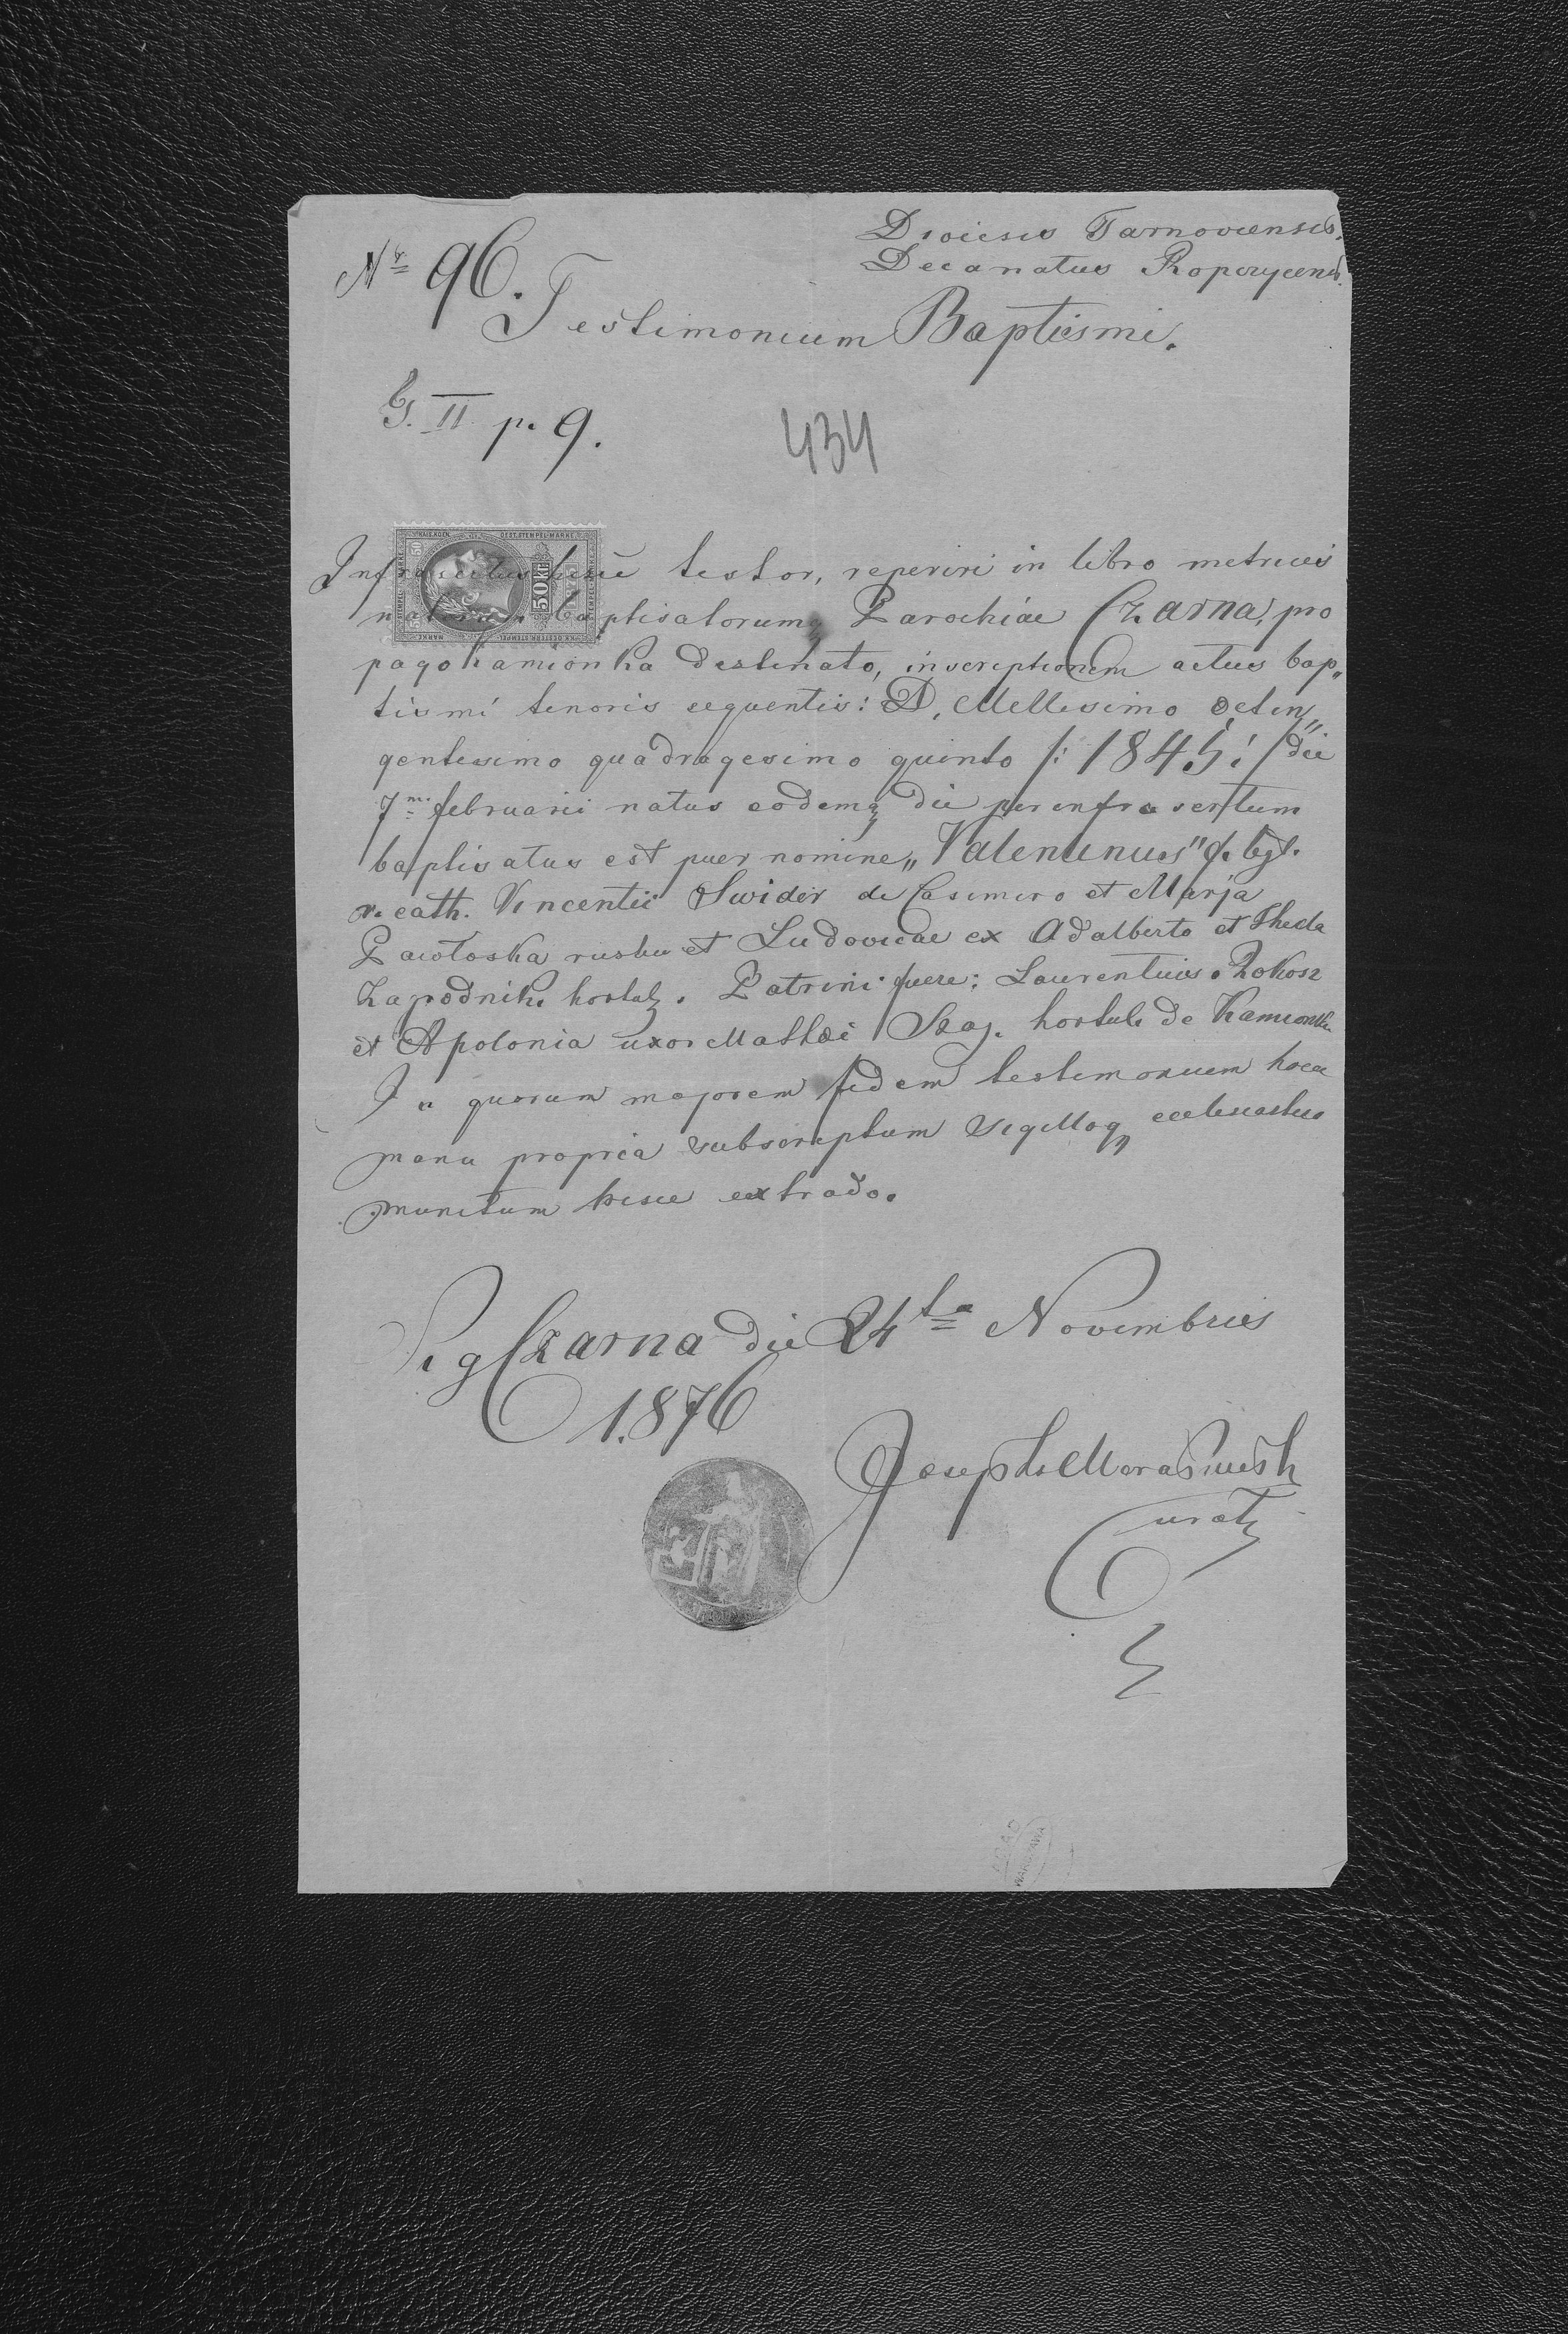 Nr 96.
Dioicesis Tarnoviensis.
Decanatus Ropczycens.
Testimonium Baptismi.
T. II p. 9.
434
50 Kr
Infrascriptus hisce testor, reperiri in libro metrices
natorum baptisatorumq Parochiae Czarna, pro
pago Kamionka destinato, inscriptionem actus bap„
tismi tenoris sequentis: D. Millesimo Octin„
gentesimo quadragesimo quinto /: 1845 :/ die
7ma februarii natus eodemq die per infrascriptum
baptisatus est puer nomine „Valentinus" f. legt.
r. cath. Vincentii Swider de Casimiro et Marja
et Ludovicae ex Adalberto et Thecla
hortul. Patrini fuere: Laurentius Rokosz
et Apolonia uxor Mathæi hortul. de Kamionka
In quorum majorem fidem testimonium hocce
manu propria subscriptum sigilloq ecclesiastico
munitum hisce extrado.
Sig Czarna die 24ta Novembris
1876
Joseph
Curat
WARSZAWA